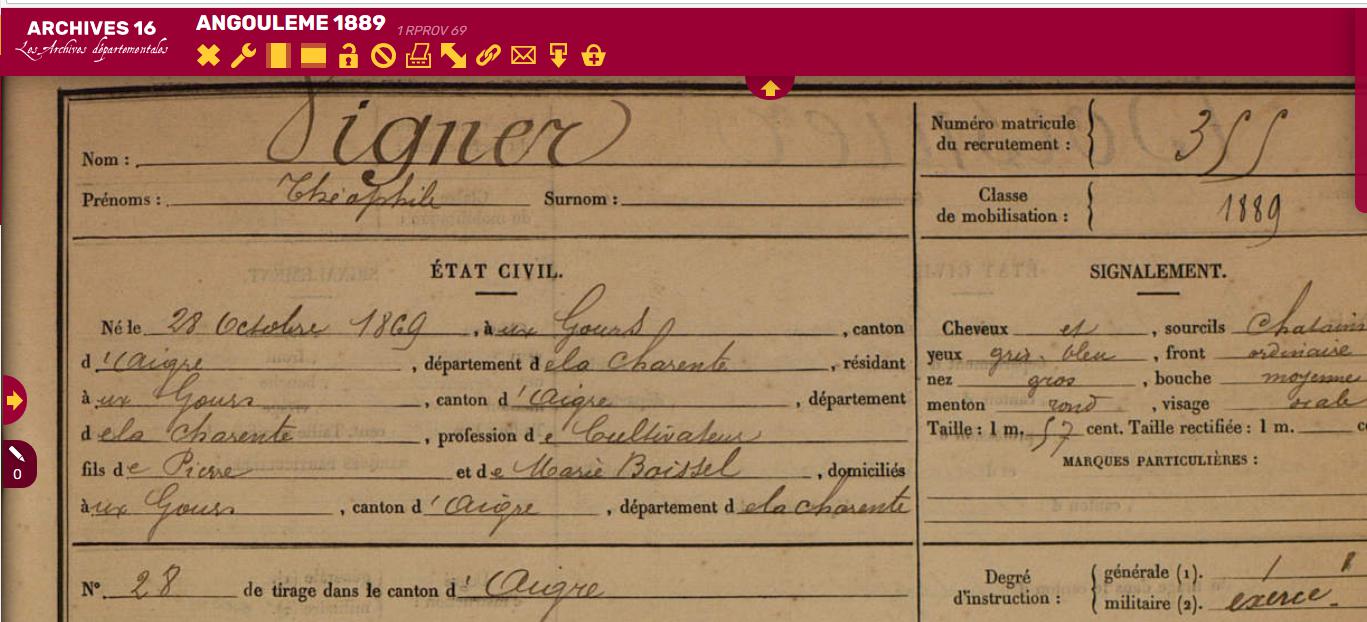 ARCHIVES 16
Les Archives départementales
ANGOULEME 1889 1 RPROV 69
0
Nom : Vigner
Prénoms : Théophile Surnom :
Numéro matricule du recrutement : 355
Classe de mobilisation : 1889
ÉTAT CIVIL.
Né le 28 Octobre 1869, à ux Gours, canton
d'Aigre, département de la Charente, résidant
à ux Gours, canton d'Aigre, département
de la Charente, profession de Cultivateur
fils de Pierre et de Marie Boissel, domiciliés
à ux Gours, canton d'Aigre, département de la Charente
N° 28 de tirage dans le canton d'Aigre
SIGNALEMENT.
Cheveux et, sourcils Chatains
yeux gris bleu, front ordinaire
nez gros, bouche moyenne
menton rond, visage ovale
Taille : 1 m. 57 cent. Taille rectifiée : 1 m. c
MARQUES PARTICULIÈRES :
Degré d'instruction : générale (1). 1
militaire (2). exercé